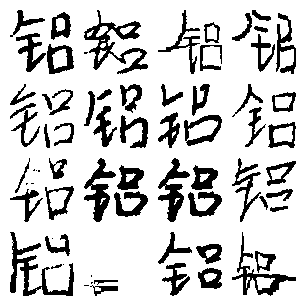 铝铝铝铝
铝铝铝铝
铝铝铝铝
铝铝铝